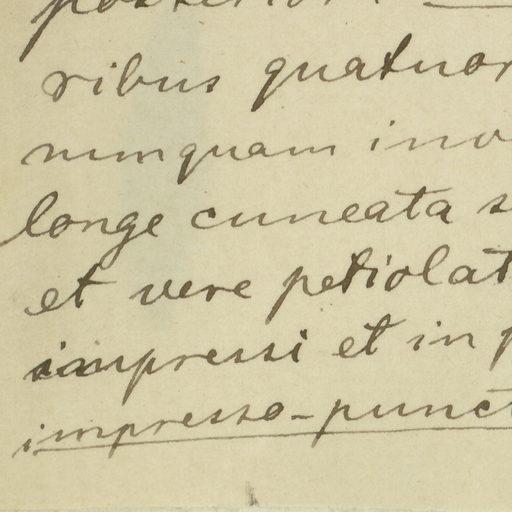 posterior
ribus quatuor
nunquam inv
longe cuneata s
et vere petiolat
impressi et in p
impresso-punct